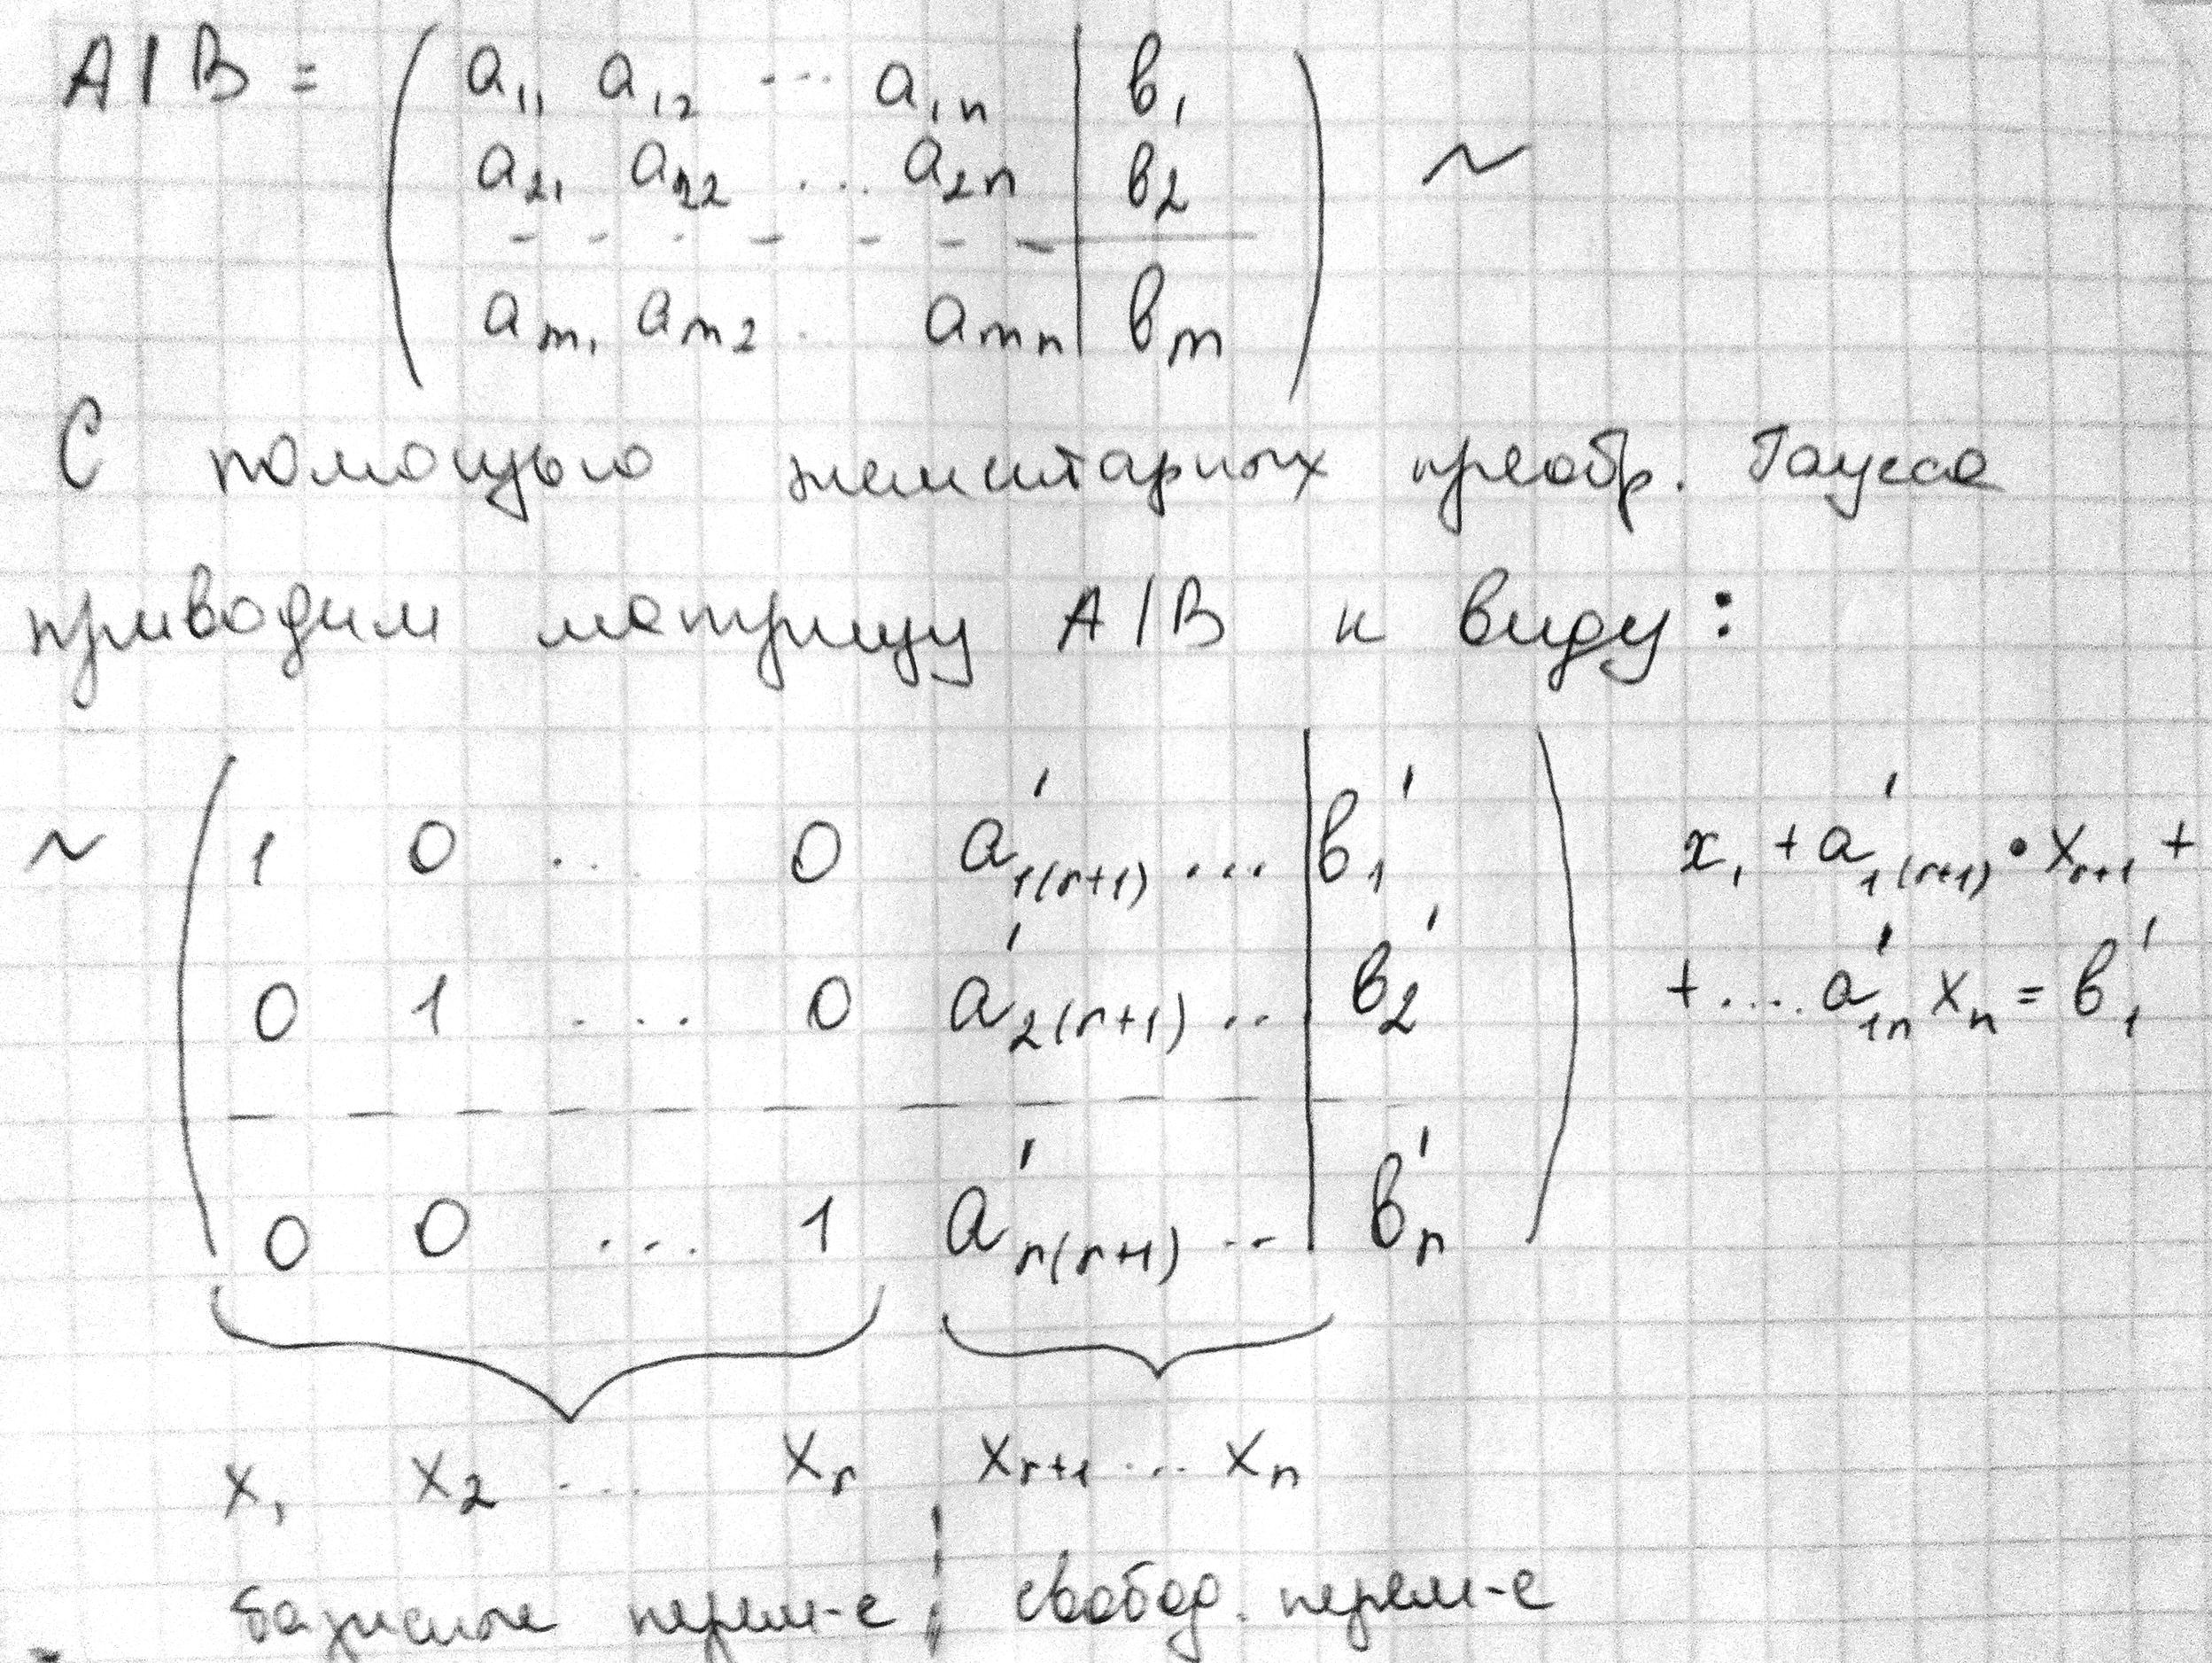 A|B = ( a₁₁ a₁₂ ... a₁ₙ | в₁ ) ~
a₂₁ a₂₂ ... a₂ₙ | в₂
- - - - - - -
aₘ₁ aₘ₂ .. aₘₙ | вₘ
С помощью элементарных преобр. Гаусса
приводим матрицу A|B к виду:
~ ( 1 0 ... 0 a'₁₍ᵣ₊₁₎ ... | в₁' ) x₁ + a'₁₍ᵣ₊₁₎ • xᵣ₊₁ +
0 1 ... 0 a'₂₍ᵣ₊₁₎ .. | в₂' + .... a'₁ₙ xₙ = в₁'
- - - - - - - - - - - -
0 0 ... 1 a'ᵣ₍ᵣ₊₁₎ .. | вᵣ'
x₁ x₂ ... xᵣ xᵣ₊₁ ... xₙ
базисные перем-е ¦ свобод. перем-е